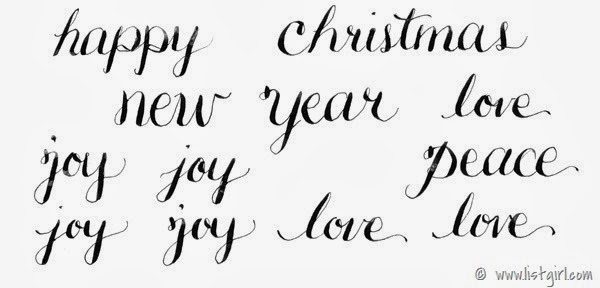 happy christmas
new year love
joy joy peace
joy joy love love
© www.listgirl.com